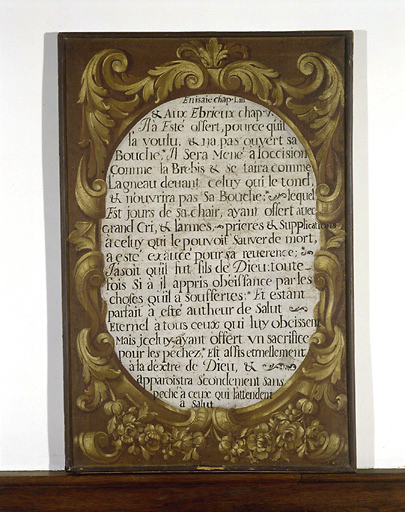 En isaie chap. Liii
& Aux Ebrieux chap.
Il a Esté offert, pource quil
la voulu, & na pas ouvert sa
Bouche: Il Sera Mené a loccision
Comme la Brebis & se taira comme
Lagneau devant celuy qui le tond,
& nouvrira pas Sa Bouche: lequel
Est jours de sa chair, ayant offert avec
grand Cri, & larmes, prieres & Supplications
à celuy qui le pouvoit Sauver de mort
a esté exaucé pour sa reverence;
Jasoit quil fut fils de Dieu: toute-
fois Si à il appris obeissance par les
choses quil à Souffertes: Et estant
parfait à esté autheur de Salut
Eternel à tous ceux qui luy obeissent
Mais jceluy ayant offert vn sacrifice
pour les pechez, Est assis etternellement
à la dextre de Dieu, &
apparoistra Scondement sans
peché à ceux qui lattendent
à Salut